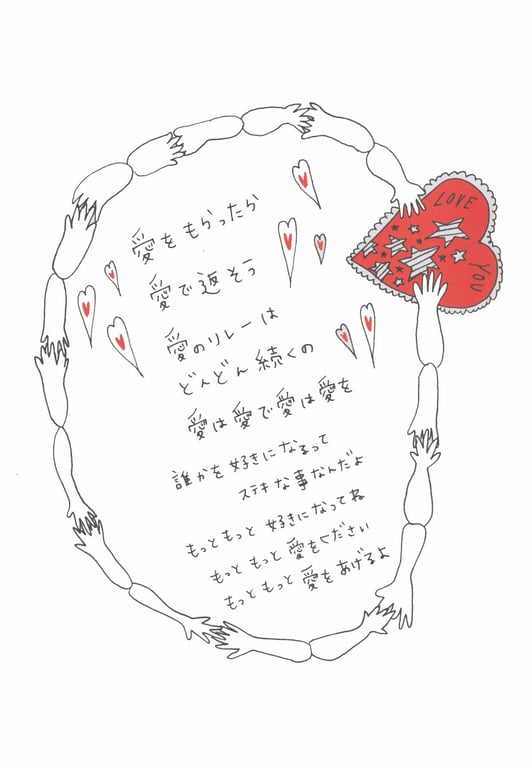 愛をもらったら
愛で返そう
愛のリレーは
どんどん続くの
愛は愛で愛は愛を
誰かを好きになるって
ステキな事なんだよ
もっともっと好きになってね
もっともっと愛をください
もっともっと愛をあげるよ
LOVE
YOU